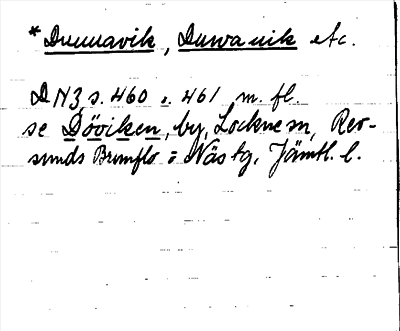 * Duuuavik, Duwa uik etc.
DN3, s. 460 o. 461 m. fl.
se Döviken, by, Lockne sn, Rev-
sunds Brunflo o Näs tg, Jämtl. l.